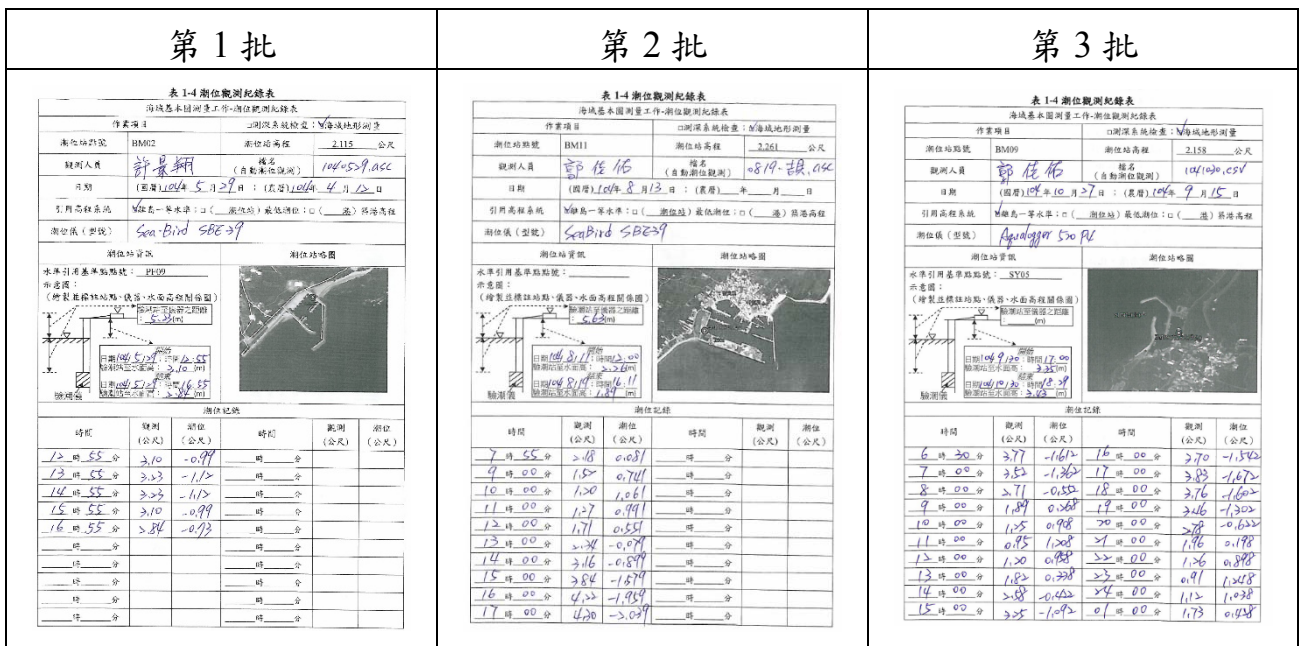 第 1 批
第 2 批
第 3 批
表 1-4 潮位觀測紀錄表
海域基本圖測量工作-潮位觀測紀錄表
作業項目 □測深系統檢查;☑海域地形測量
潮位站點號 BM02 潮位站高程 2.115 公尺
觀測人員 許景翔 檔名(自動潮位觀測) 1040529.asc
日期 (國曆)104年 5 月 29 日;(農曆)104年 4 月 12 日
引用高程系統 ☑離島一等水準;□( 潮位站)最低潮位;□( 港)築港高程
潮位儀(型號) Sea-Bird SBE39
潮位站資訊 潮位站略圖
水準引用基準點點號: PF09
示意圖:
(繪製並標註站點、儀器、水面高程關係圖)
驗潮站至儀器之距離
: 5.23(m)
開始
日期104/5/29:時間12:55
驗潮站至水面高: 3.10 (m)
結束
日期104/5/29:時間16:55
驗潮站至水面高: 2.84 (m)
驗潮儀
潮位記錄
時間 觀測(公尺) 潮位(公尺) 時間 觀測(公尺) 潮位(公尺)
12 時 55 分 3.10 -0.99 時 分
13 時 55 分 3.23 -1.12 時 分
14 時 55 分 3.23 -1.12 時 分
15 時 55 分 3.10 -0.99 時 分
16 時 55 分 2.84 -0.73 時 分
時 分 時 分
時 分 時 分
時 分 時 分
時 分 時 分
時 分 時 分
表 1-4 潮位觀測紀錄表
海域基本圖測量工作-潮位觀測紀錄表
作業項目 □測深系統檢查;☑海域地形測量
潮位站點號 BM11 潮位站高程 2.261 公尺
觀測人員 郭佳佑 檔名(自動潮位觀測) 0819-.asc
日期 (國曆)104年 8 月 13 日;(農曆) 年 月 日
引用高程系統 ☑離島一等水準;□( 潮位站)最低潮位;□( 港)築港高程
潮位儀(型號) SeaBird SBE39
潮位站資訊 潮位站略圖
水準引用基準點點號:
示意圖:
(繪製並標註站點、儀器、水面高程關係圖)
驗潮站至儀器之距離
: 5.63(m)
開始
日期104/8/11:時間12:00
驗潮站至水面高: 2.26(m)
結束
日期104/8/19:時間16:11
驗潮站至水面高: 1.89 (m)
驗潮儀
潮位記錄
時間 觀測(公尺) 潮位(公尺) 時間 觀測(公尺) 潮位(公尺)
7 時 55 分 2.18 0.081 時 分
9 時 00 分 1.52 0.741 時 分
10 時 00 分 1.20 1.061 時 分
11 時 00 分 1.27 0.991 時 分
12 時 00 分 1.71 0.551 時 分
13 時 00 分 2.34 -0.079 時 分
14 時 00 分 3.16 -0.899 時 分
15 時 00 分 3.84 -1.579 時 分
16 時 00 分 4.22 -1.959 時 分
17 時 00 分 4.30 -2.039 時 分
表 1-4 潮位觀測紀錄表
海域基本圖測量工作-潮位觀測紀錄表
作業項目 □測深系統檢查;☑海域地形測量
潮位站點號 BM09 潮位站高程 2.158 公尺
觀測人員 郭佳佑 檔名(自動潮位觀測) 1041030.csv
日期 (國曆)104年 10 月 27 日;(農曆)104年 9 月 15 日
引用高程系統 ☑離島一等水準;□( 潮位站)最低潮位;□( 港)築港高程
潮位儀(型號) Aqualogger 520 PT
潮位站資訊 潮位站略圖
水準引用基準點點號: SY05
示意圖:
(繪製並標註站點、儀器、水面高程關係圖)
驗潮站至儀器之距離
: (m)
開始
日期104/9/30:時間17:00
驗潮站至水面高: 3.35(m)
結束
日期104/10/30:時間18:29
驗潮站至水面高: 3.43 (m)
驗潮儀
潮位記錄
時間 觀測(公尺) 潮位(公尺) 時間 觀測(公尺) 潮位(公尺)
6 時 30 分 3.77 -1.612 16 時 00 分 3.70 -1.542
7 時 00 分 3.52 -1.362 17 時 00 分 3.83 -1.672
8 時 00 分 2.71 -0.552 18 時 00 分 3.76 -1.602
9 時 00 分 1.89 0.268 19 時 00 分 3.46 -1.302
10 時 00 分 1.25 0.908 20 時 00 分 2.78 -0.622
11 時 00 分 0.95 1.208 21 時 00 分 1.96 0.198
12 時 00 分 1.20 0.958 22 時 00 分 1.26 0.898
13 時 00 分 1.82 0.338 23 時 00 分 0.91 1.248
14 時 00 分 2.58 -0.422 24 時 00 分 1.12 1.038
15 時 00 分 3.25 -1.092 01 時 00 分 1.73 0.428